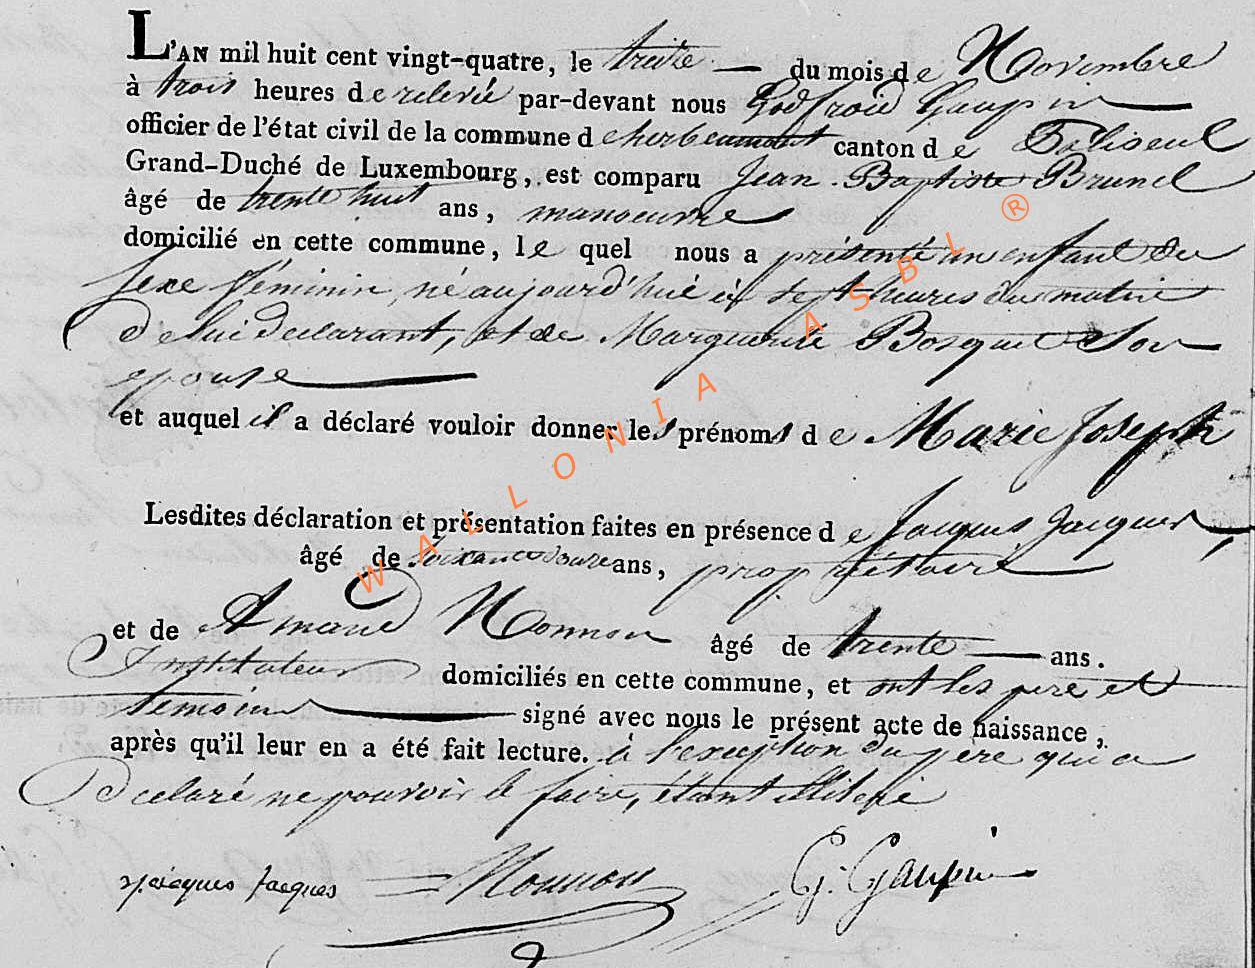 L'AN mil huit cent vingt-quatre, le treize du mois de Novembre
à trois heures de relevée par-devant nous Godfroid Gaupin
officier de l'état civil de la commune d'herbeumont canton de Paliseul
Grand-Duché de Luxembourg, est comparu Jean Baptiste Brunel
âgé de trente huit ans, manoeuvre
domicilié en cette commune, le quel nous a présenté un enfant du
sexe féminin, né aujourd'hui à sept heures du matin
De lui declarant, et de Marguerite Bosquet Son
epouse
et auquel il a déclaré vouloir donner les prénoms de Marie Joseph
Lesdites déclaration et présentation faites en présence de Jacques Jacques
âgé de soixante douze ans, propriétaire
et de Amand Monnon âgé de trente ans.
Instituteur domiciliés en cette commune, et ont les pere et
temoins signé avec nous le présent acte de naissance,
après qu'il leur en a été fait lecture. à l'exception du père qui a
Declaré ne pouvoir le faire, étant illiteré
Jacques Jacques Monnon G. Gaupin
WALLONIA ASBL ®